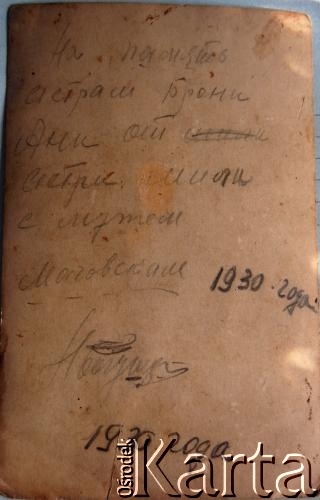 На память
сястрам Брони
Яни от
сестри мили
с мужем
Маговскам 1930 года
19 года
Ośrodek Karta